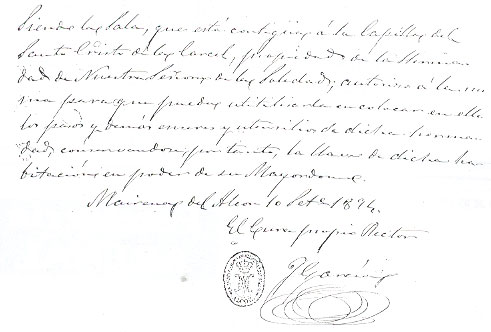 Siendo la Sala, que está contigüa á la Capilla del
Santo Cristo de la Carcel, propiedad de la Herman
dad de Nuestra Señora de la Soledad, autoriso á la mis
ma para que pueda utilisarla en colocar en ella
los pasos y demás enseres y utensilios de dicha herman
dad, conservandose, por tanto, la llave de dicha ha
bitación, en poder de su Mayordomo.
Mairena del Alcor 10 Set.e 1894.
El Cura propio Rector
J. García